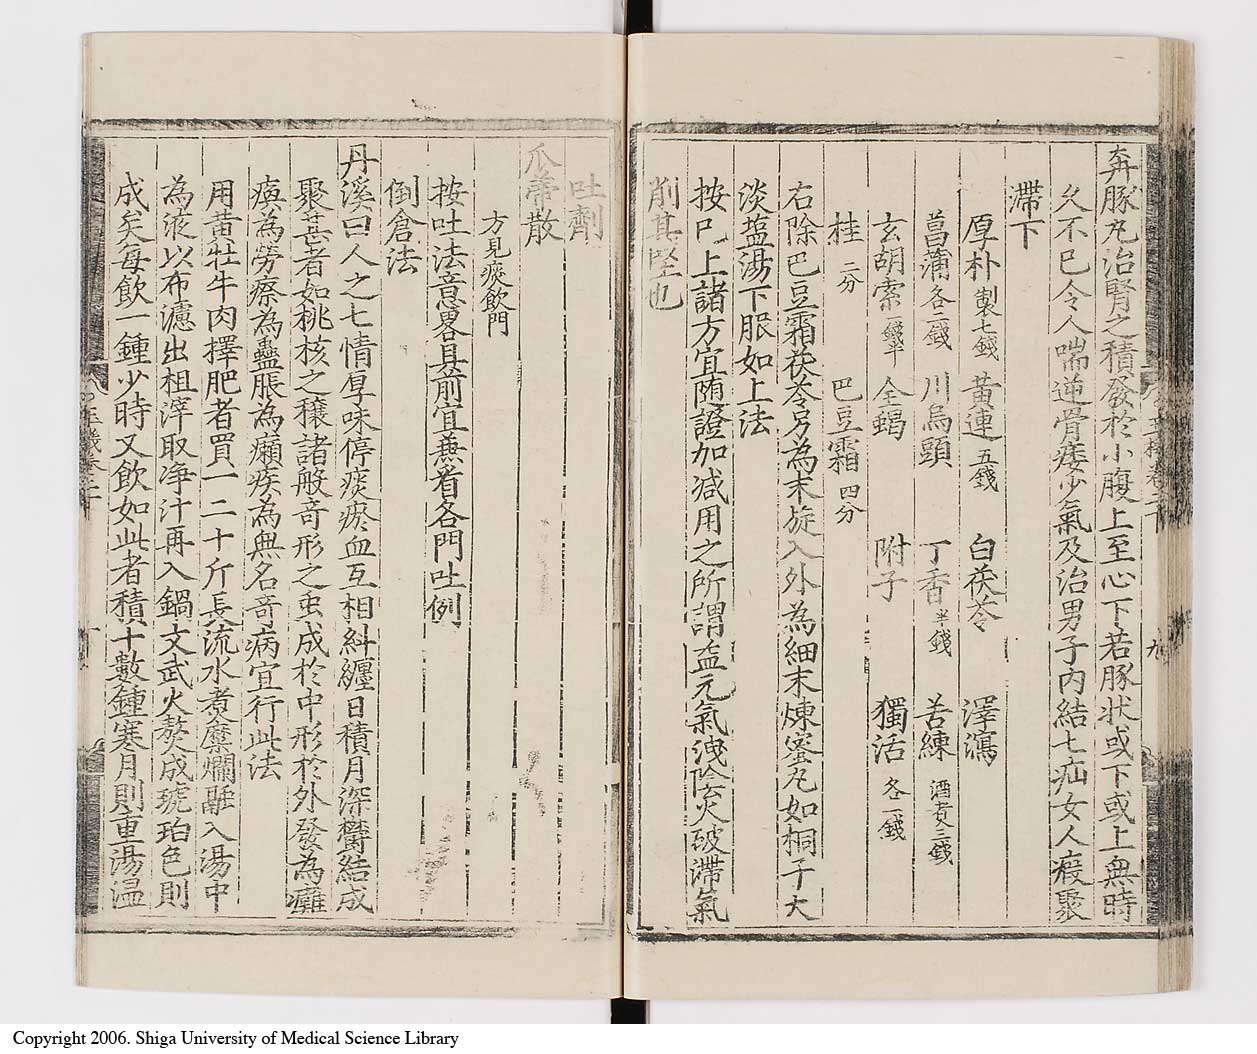 奔豚丸治腎之積發於小腹上至心下若豚状或下或上無時
久不已令人喘逆骨痿少氣及治男子內結七疝女人瘕聚
滯下
厚朴製七錢 黃連五錢 白茯苓 澤瀉
菖蒲各二錢 川烏頭 丁香半錢 苦練酒煮三錢
玄胡索一錢半 全蝎 附子 獨活各一錢
桂二分 巴豆霜四分
右除巴豆霜茯苓另為末旋入外為細末煉蜜丸如桐子大
淡塩湯下服如上法
按已上諸方宜随證加減用之所謂益元氣洩陰火破滯氣
削其堅也
吐劑
瓜蒂散
方見痰飲門
按吐法意畧具前宜兼看各門吐例
倒倉法
丹溪曰人之七情厚味停痰瘀血互相糾纏日積月深欝結成
聚甚者如桃核之穣諸般竒形之虫成於中形於外發為癱
瘓為勞瘵為蠱脹為癩疾為無名竒病宜行此法
用黃牡牛肉擇肥者買一二十斤長流水煮糜爛融入湯中
為液以布濾出柤滓取净汁再入鍋文武火熬成琥珀色則
成矣每飲一鍾少時又飲如此者積十數鍾寒月則重湯温
Copyright 2006. Shiga University of Medical Science Library